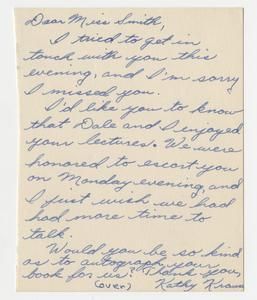 Dear Miss Smith,
I tried to get in
touch with you this
evening, and I'm sorry
I missed you.
I'd like you to know
that Dale and I enjoyed
your lectures. We were
honored to escort you
on Monday evening, and
I just wish we had
had more time to
talk.
Would you be so kind
as to autograph your
book for us? Thank you,
(over) Kathy